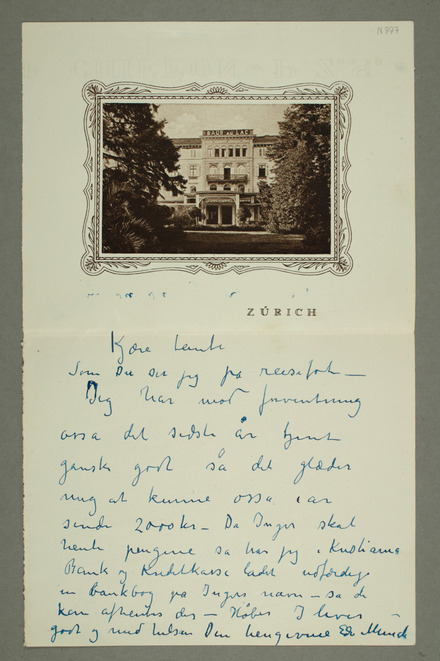 N 777
BAUR AU LAC
ZÚRICH
Kjære tante
Som Du ser jeg på reisefot —
Jeg har mod forventning
ossa det sidste år tjent
ganske godt så det glæder
mig at kunne ossa i år
sende 2000 kr — Da Inger skal
hente pengene så har jeg i Kristiania
Bank og Kreditkasse ladet udfærdige
en bankbog på Ingers navn — så de
kan afhentes der — Håber I lever —
godt og med hilsen Din hengivne E Munch